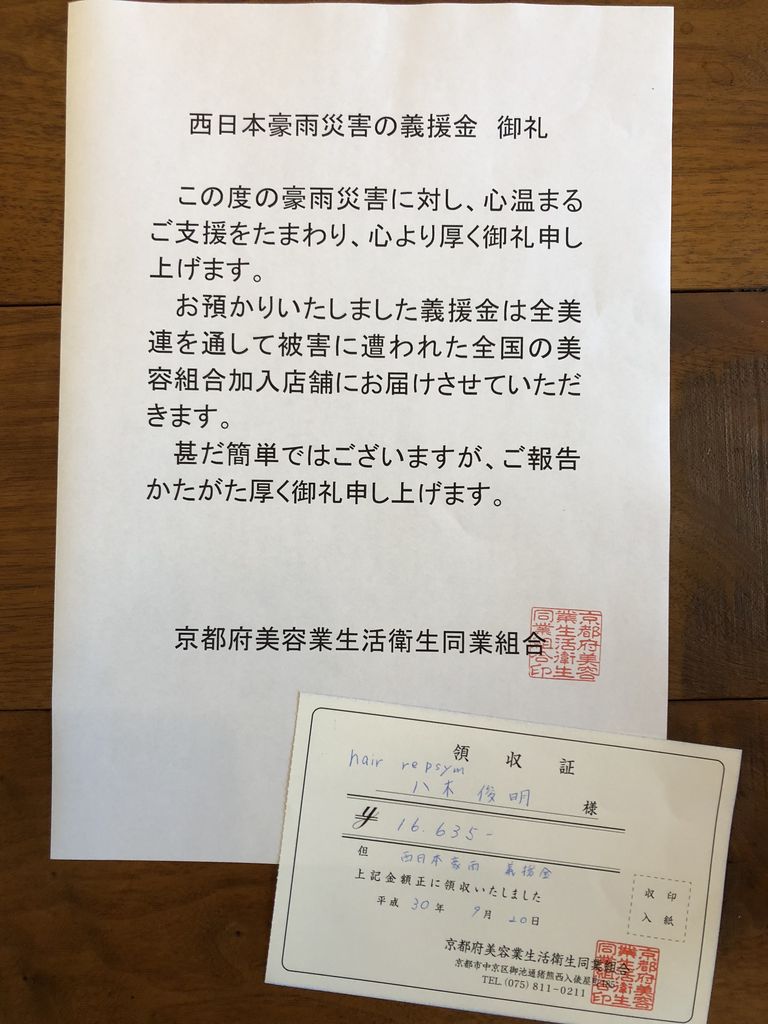 西日本豪雨災害の義援金 御礼
この度の豪雨災害に対し、心温まる
ご支援をたまわり、心より厚く御礼申し
上げます。
お預かりいたしました義援金は全美
連を通して被害に遭われた全国の美
容組合加入店舗にお届けさせていただ
きます。
甚だ簡単ではございますが、ご報告
かたがた厚く御礼申し上げます。
京都府美容業生活衛生同業組合
京都府美容
業生活衛生
同業組合印
領収証
hair repsym
八木俊明 様
¥ 16.635-
但 西日本豪雨 義援金
上記金額正に領収いたしました
平成 30年 9月 20日
収印
入紙
京都府美容業生活衛生同業組合
京都市中京区御池通猪熊西入後屋町
TEL.(075) 811-0211
京都府美容
業生活衛生
同業組合印